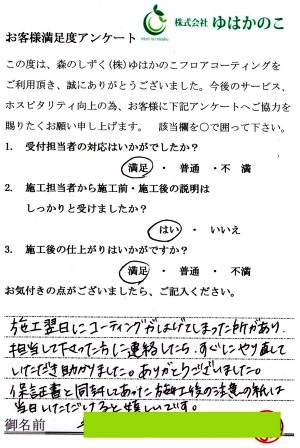 株式会社 ゆはかのこ
Mori no shizuku
お客様満足度アンケート
この度は、森のしずく(株)ゆはかのこフロアコーティングを
ご利用頂き、誠にありがとうございました。今後のサービス、
ホスピタリティ向上の為、お客様に下記アンケートへご協力を
賜りたくお願い申し上げます。 該当欄を○で囲って下さい。
1. 受付担当者の対応はいかがでしたか?
満足 ・ 普通 ・不 満
2. 施工担当者から施工前・施工後の説明は
しっかりと受けましたか?
はい ・ いいえ
3. 施工後の仕上がりはいかがですか?
満足 ・ 普通 ・ 不 満
お気付きの点がございましたら、ご記入ください。
施工翌日にコーティングがはげてしまった所があり、
担当して下さった方に連絡したら、すぐにやり直して
いただき助かりました。ありがとうございました。
保証書と同封してあった施工後の注意の紙は
当日いただけると嬉しいです。
御名前